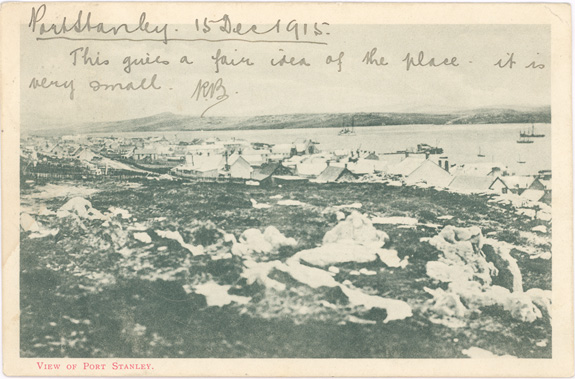 Port Stanley. 15 Dec 1915.
This gives a fair idea of the place. it is
very small. RB.
VIEW OF PORT STANLEY.